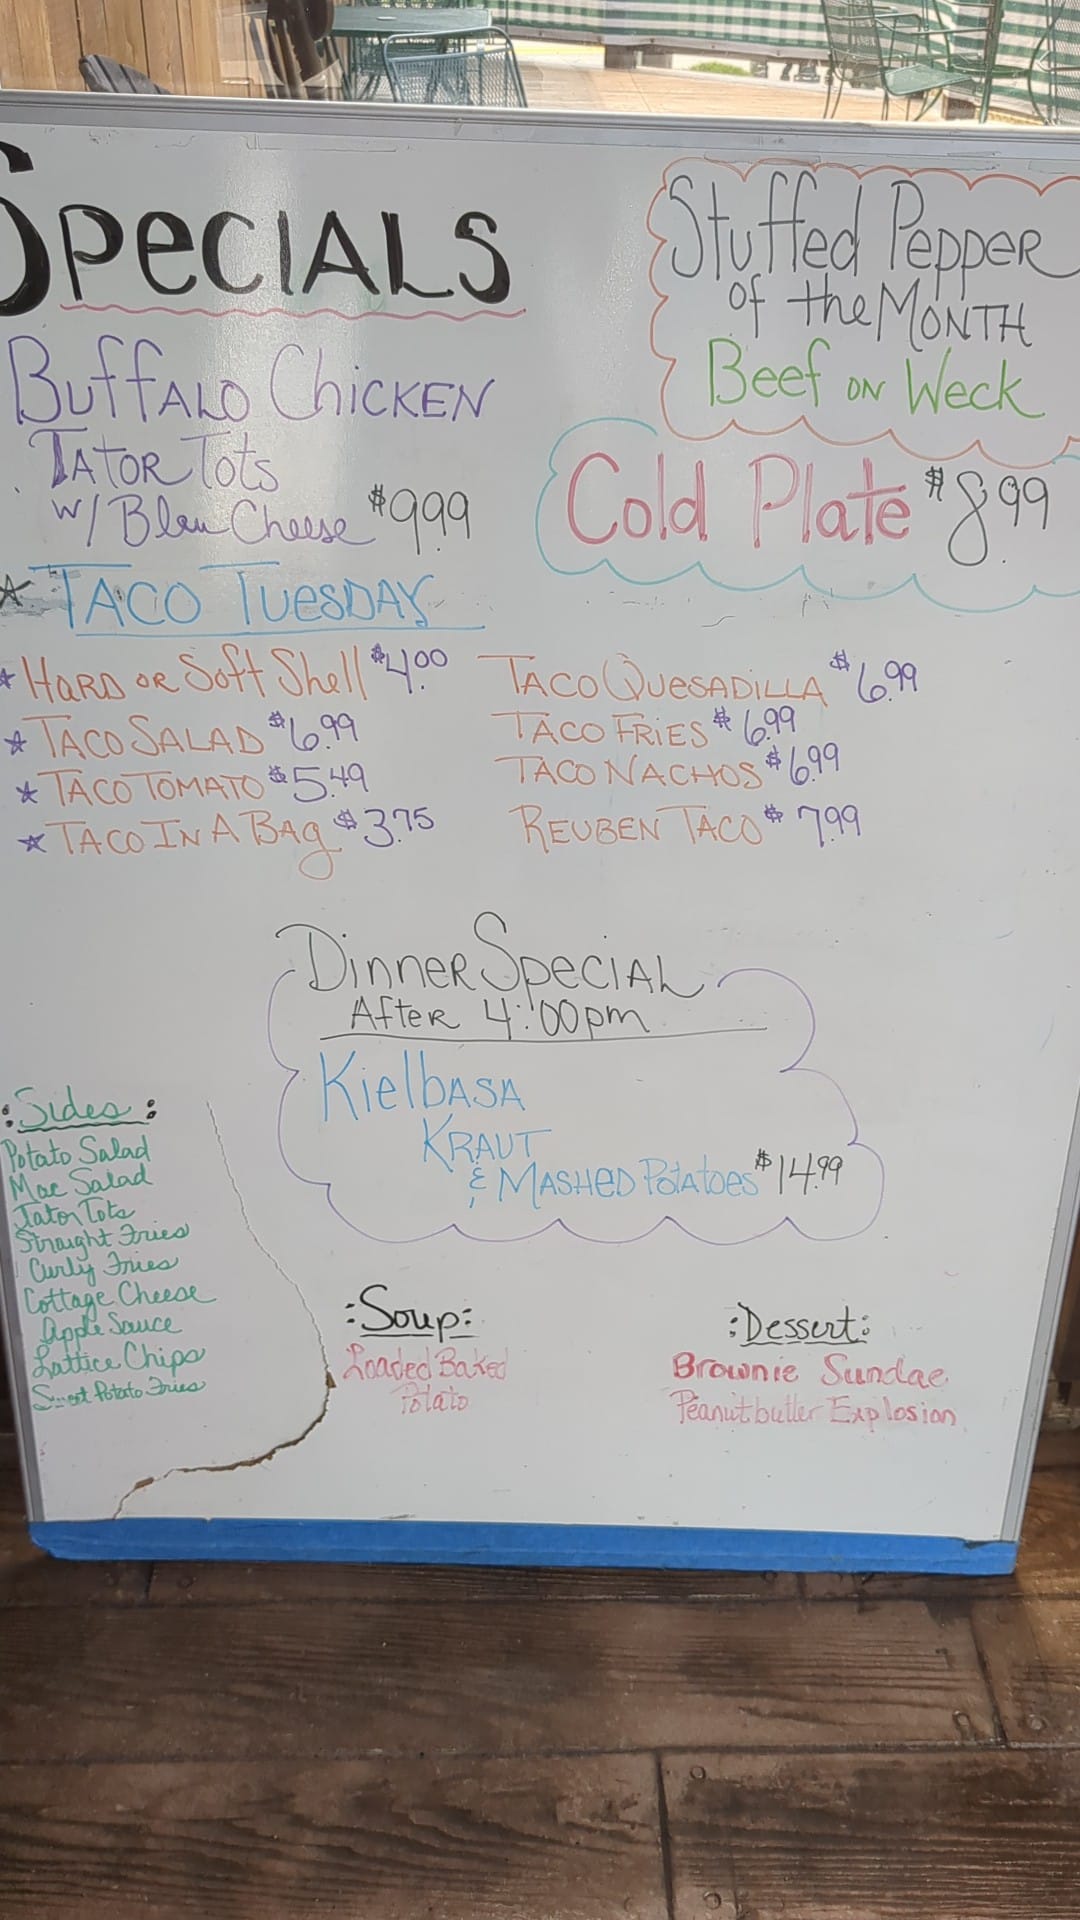 Specials
Buffalo Chicken
Tator Tots
w/ Bleu Cheese $9.99
Stuffed Pepper
of the Month
Beef on Weck
Cold Plate $8.99
Taco Tuesday
Hard or Soft Shell $4.00
Taco Salad $6.99
Taco Tomato $5.49
Taco In A Bag $3.75
Taco Quesadilla $6.99
Taco Fries $6.99
Taco Nachos $6.99
Reuben Taco $7.99
Dinner Special
After 4:00pm
Kielbasa
Kraut
& Mashed Potatoes $14.99
:Sides:
Potato Salad
Mac Salad
Tator Tots
Straight Fries
Curly Fries
Cottage Cheese
Apple Sauce
Lattice Chips
Sweet Potato Fries
:Soup:
Loaded Baked
Potato
:Dessert:
Brownie Sundae
Peanutbutter Explosion